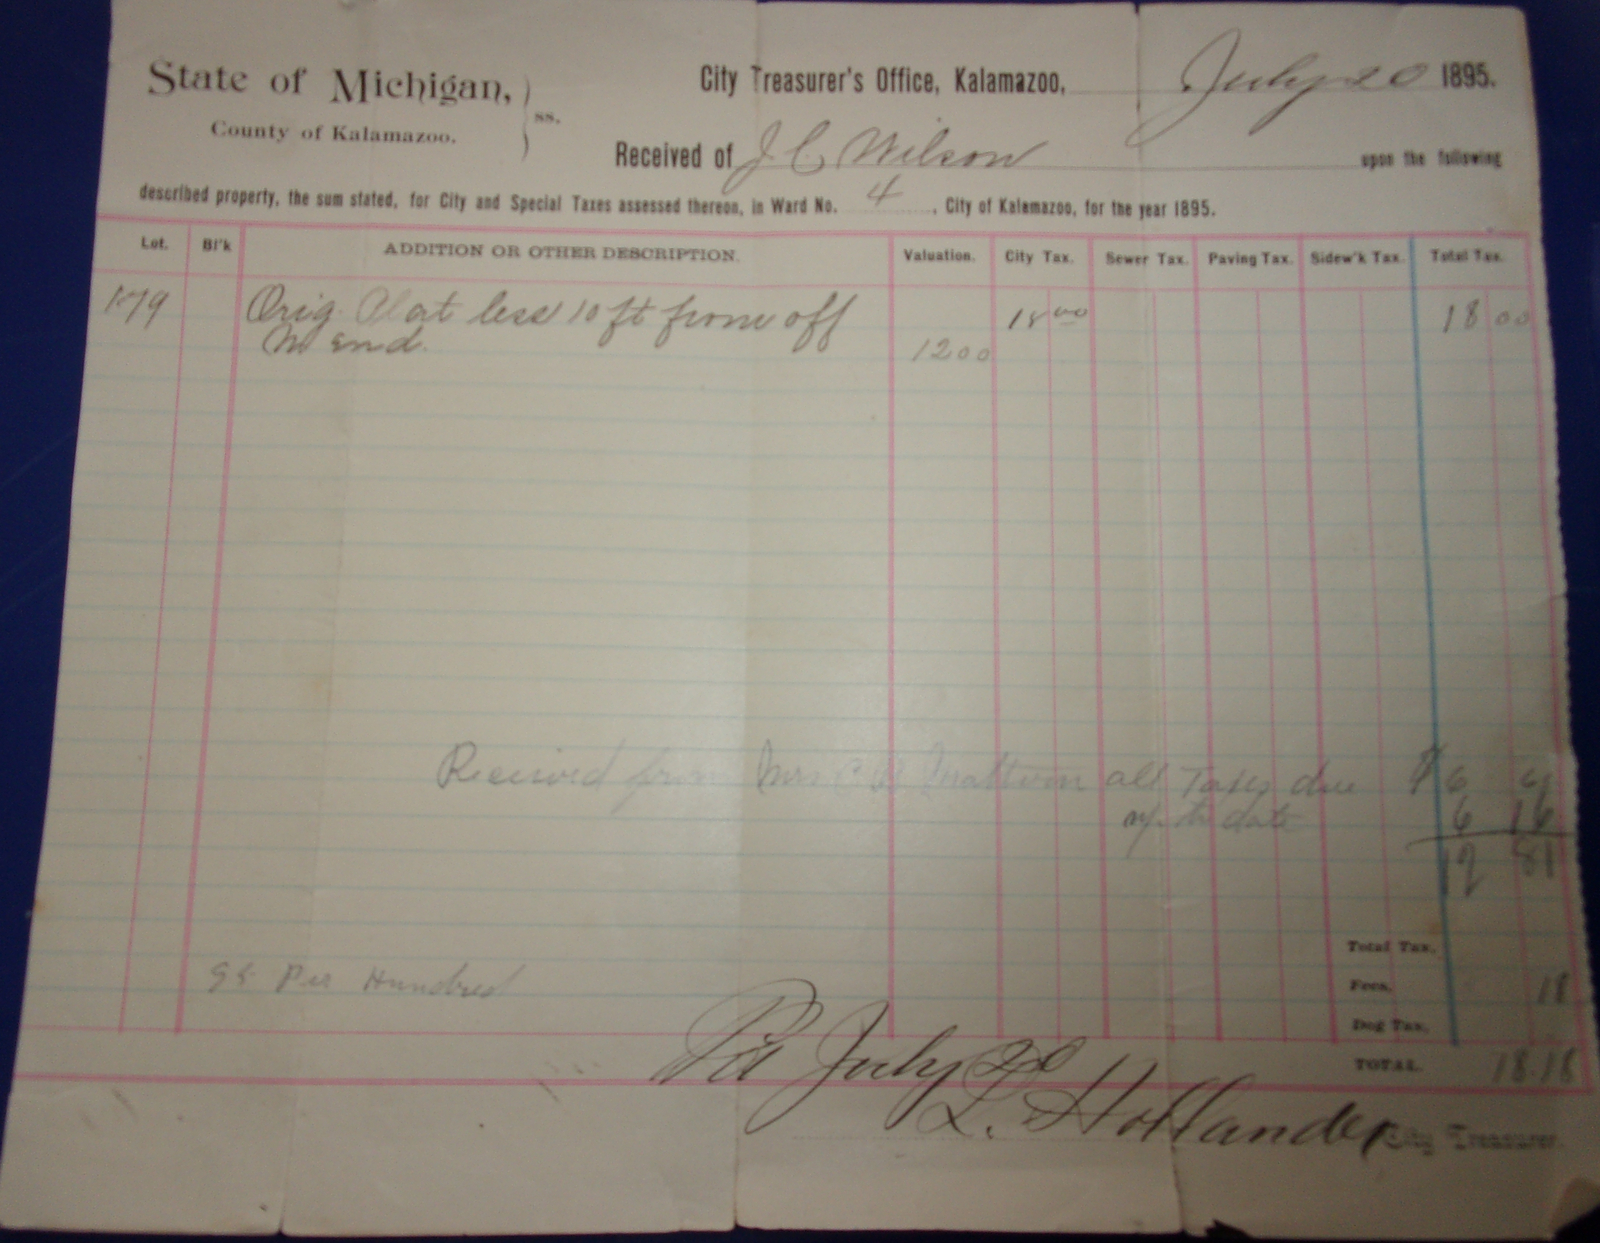 State of Michigan, } ss. City Treasurer's Office, Kalamazoo, July 20 1895.
County of Kalamazoo.
Received of J C Wilson upon the following
described property, the sum stated, for City and Special Taxes assessed thereon, in Ward No. 4, City of Kalamazoo, for the year 1895.
Lot. Bl'k ADDITION OR OTHER DESCRIPTION. Valuation. City Tax. Sewer Tax. Paving Tax. Sidew'k Tax. Total Tax.
179 Orig. Plat less 10 ft from off 18 00 18 00
End. 1200
Received from Mrs all Taxes due $ 6
up to date 6 16
12 81
Total Tax.
Per Hundred Fees. 18
Dog Tax.
Pd July 20 TOTAL. 18.18
L. Hollander City Treasurer.